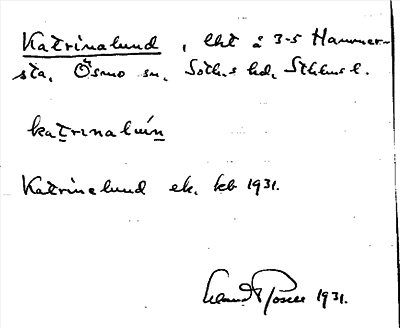 Katrinalund, lht å 3-5 Hammer-
sta, Ösmo sn, Soth.s hd, Sthlms l.
katrinalun̄n
Katrinelund ek. kb 1931.
1931.